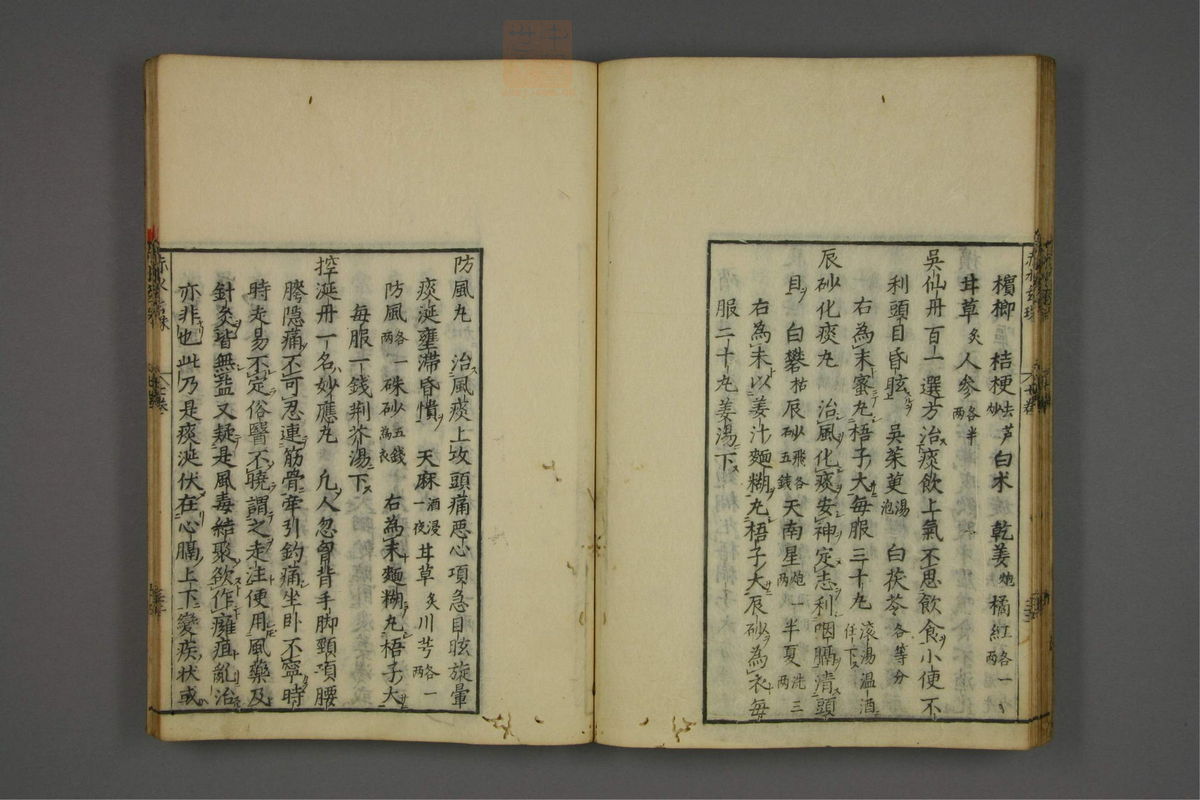 檳榔 桔梗去芦炒 白术 乾姜炮 橘紅各一两
甘草炙 人参各半两
吳仙丹百一選方治痰飲上氣不思飲食小便不
利頭目昏眩 吳茱萸湯泡 白茯苓各等分
右為末蜜丸梧子大每服三十丸滾湯温酒任下
辰砂化痰丸 治風化痰安神定志利咽膈清頭
目 白礬枯 辰砂飛各五錢 天南星炮一两 半夏洗三两
右為末以姜汁麵糊丸梧子大辰砂為衣每
服二十丸姜湯下
防風丸 治風痰上攻頭痛惡心項急目眩旋暈
痰涎壅滯昏憒 天麻酒浸一夜 甘草炙 川芎各一两
防風各一两 硃砂五錢為衣 右為末麵糊丸梧子大
每服一錢荆芥湯下
控涎丹一名妙應丸 凡人忽胷背手脚頸項腰
胯隱痛不可忍連筋骨牽引釣痛坐卧不寧時
時走易不定俗醫不曉謂之走注便用風藥及
針灸皆無益又疑是風毒結聚欲作癰疽亂治
亦非也此乃是痰涎伏在心膈上下變疾状或